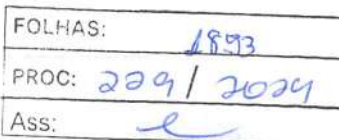 FOLHAS: 1893
PROC: 229/2024
Ass: